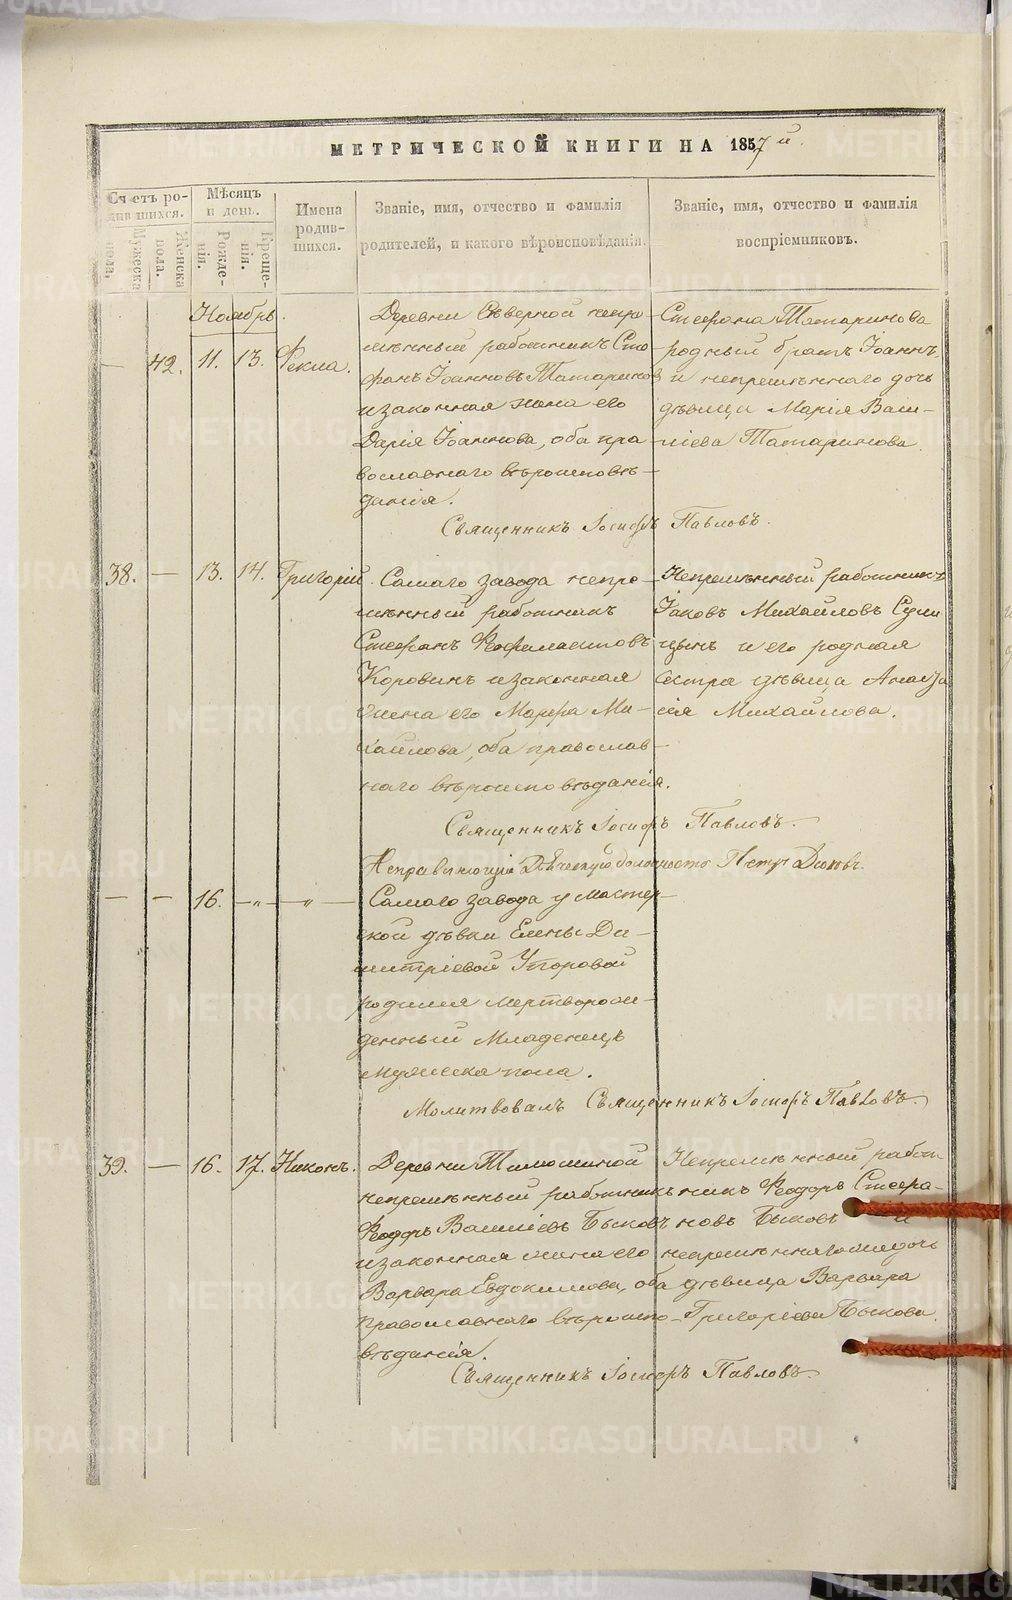 МЕТРИЧЕСКОЙ КНИГИ НА 1857 й.
Счетъ ро-
дившихся.
Мужеска
пола.
Женска
пола.
Мѣсяцъ
и день.
Рожде-
нія.
Креще-
нія.
Имена
родив-
шихся.
Званіе, имя, отчество и фамилія
родителей, и какого вѣроисповѣданія.
Званіе, имя, отчество и фамилія
воспріемниковъ.
Ноябрь.
— 42. 11. 13. Фекла.
Деревни Сѣверной непре-
мѣнный работникъ Сте-
фанъ Іоанновъ Татариновъ
и законная жена его
Дарія Іоаннова, оба пра-
вославнаго вѣроисповѣ-
данія.
Стефана Татаринова
родный братъ Іоаннъ,
и непремѣннаго дочь
дѣвица Марія Васи-
ліева Татаринова.
Священникъ Іосифъ Павловъ.
38. — 13. 14. Григорій.
Самаго завода непре-
мѣнный работникъ
Стефанъ Феофилактовъ
Коровинъ и законная
жена его Марфа Ми-
хайлова, оба православ-
наго вѣроисповѣданія.
Непремѣнный работникъ
Іаковъ Михайловъ
и его родная
сестра дѣвица Анаста
сія Михайлова.
Священникъ Іосифъ Павловъ.
Исправляющій Дьяческую должность Петръ
— — 16. —„— „ —
Самаго завода у мастер-
ской дѣвки Елены Ди-
митріевой Упоровой
родился мертворож-
денный младенецъ
мужеска пола.
Молитвовалъ Священникъ Іосифъ Павловъ.
39. — 16. 17. Никонъ.
Деревни
непремѣнный работникъ
Феодоръ Василіевъ Быковъ
и законная жена его
Варвара Евдокимова, оба
православнаго вѣроиспо-
вѣданія.
Непремѣнный работ-
никъ Феодоръ Стефа-
новъ Быковъ и
непремѣннаго дочь
дѣвица Варвара
Григоріева Быкова.
Священникъ Іосифъ Павловъ.
METRIKI.GASO-URAL.RU